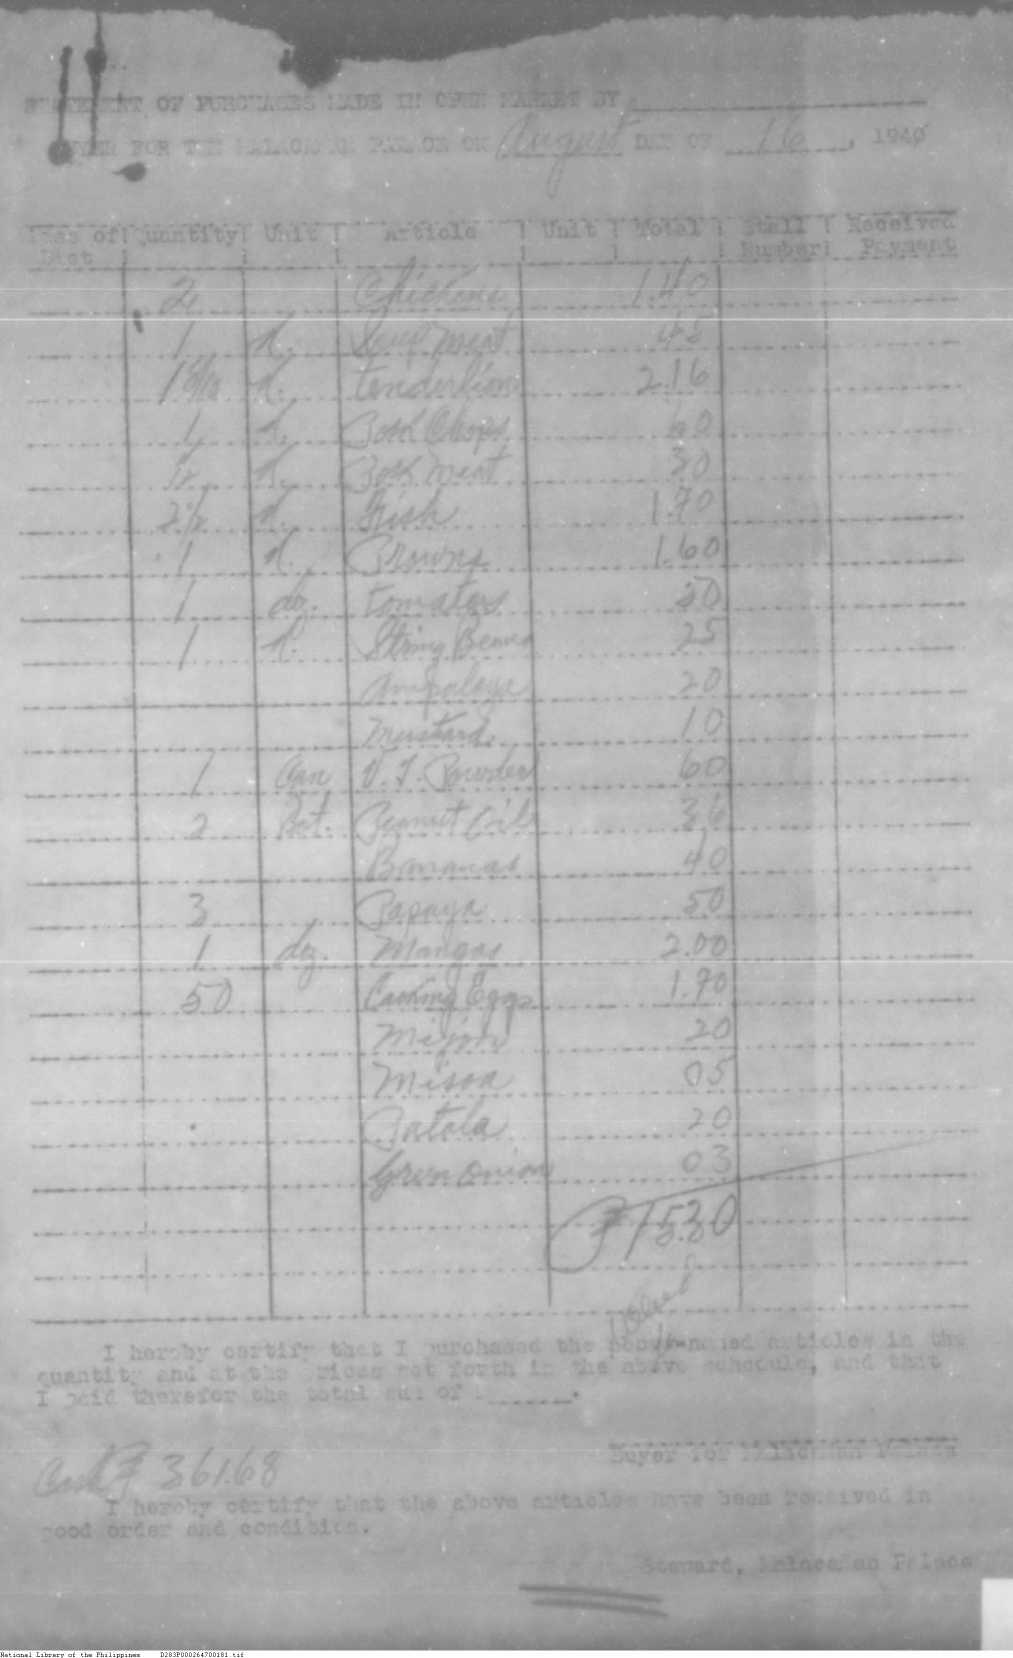 STATEMENT OF PURCHASES MADE IN OPEN MARKET BY
FOR THE MALACAÑAN PALACE ON August DAY OF 16, 1940
Class of Quantity Unit Article Unit Total Stall Received
Diet Number Payment
2 Chickens 1.40
1 k. Soup meat 45
1 8/10 k. tenderlion 2.16
1 k. Pork Chops 60
1/2 k. Pork meat 30
2 1/2 k. Fish 1.70
1 k. Prowns 1.60
1 do. tomatoes 50
1 k. String Beans 25
Ampalaya 20
Mustard. 10
1 Can V. T. Powder 60
2 Bot. Peanut Oil 36
Bananas 40
3 Papaya 50
1 doz. Mangas 2.00
50 Cooking Eggs 1.70
Mison 20
Misoa 05
Patola 20
Green onion 03
₱ 15.30
I hereby certify that I purchased the above-named articles in the
quantity and at the prices set forth in the above schedule, and that
I paid therefor the total sum of ______.
Buyer for Malacañan Palace
Cash ₱ 361.68
I hereby certify that the above articles have been received in
good order and condition.
Steward, Malacañan Palace
National Library of the Philippines D283P000264700181.tif